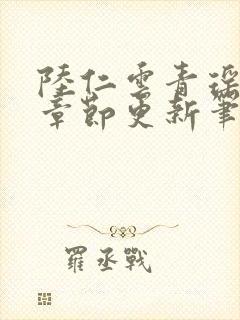 陸仁雲青瑶
章節更新筆
羅丞戰